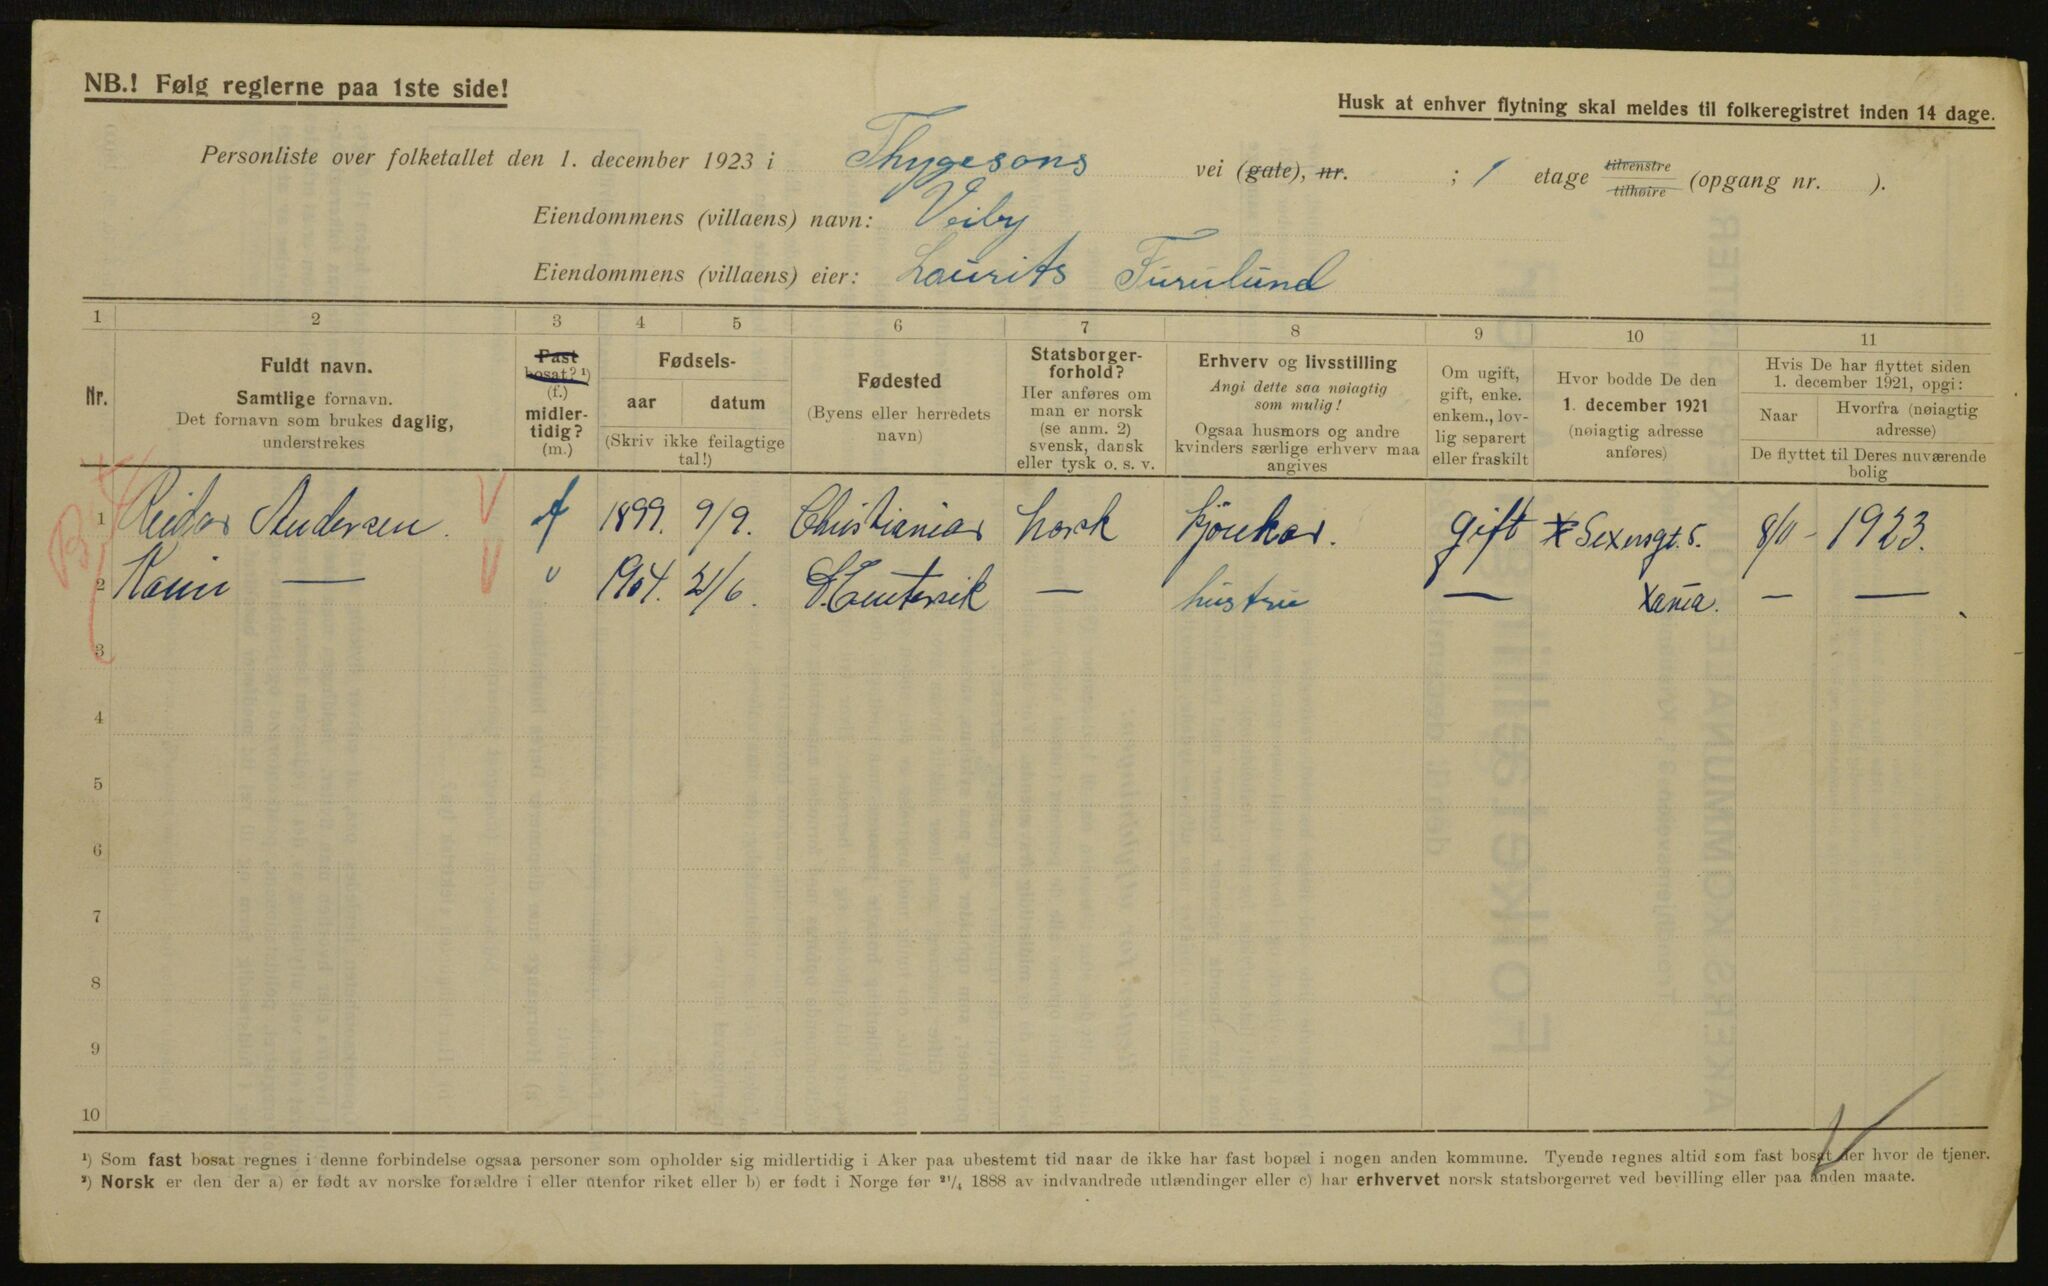 NB.! Følg reglerne paa 1ste side!
Husk at enhver flytning skal meldes til folkeregistret inden 14 dage.
Personliste over folketallet den 1. december 1923 i Thygesons vei (gate), nr. ; 1 etage tilvenstre tilhøire (opgang nr. ).
Eiendommens (villaens) navn: Veiby
Eiendommens (villaens) eier: Laurits Furulund
1 2 3 4 5 6 7 8 9 10 11
Nr.
Fuldt navn.
Samtlige fornavn.
Det fornavn som brukes daglig,
understrekes
Fast
bosat? ¹)
(f.)
midler-
tidig?
(m.)
Fødsels-
aar datum
(Skriv ikke feilagtige
tal!)
Fødested
(Byens eller herredets
navn)
Statsborger-
forhold?
Her anføres om
man er norsk
(se anm. 2)
svensk, dansk
eller tysk o. s. v.
Erhverv og livsstilling
Angi dette saa nøiagtig
som mulig!
Ogsaa husmors og andre
kvinders særlige erhverv maa
angives
Om ugift,
gift, enke.
enkem., lov-
lig separert
eller fraskilt
Hvor bodde De den
1. december 1921
(nøiagtig adresse
anføres)
Hvis De har flyttet siden
1. december 1921, opgi:
Naar Hvorfra (nøiagtig
adresse)
De flyttet til Deres nuværende
bolig
1 Reidar Andersen. f 1899. 9/9. Christiania norsk gift 8/11 - 1923.
2 Karin — " 1904. 21/6. — hustru — Xania. — —
3
4
5
6
7
8
9
10
¹) Som fast bosat regnes i denne forbindelse ogsaa personer som opholder sig midlertidig i Aker paa ubestemt tid naar de ikke har fast bopæl i nogen anden kommune. Tyende regnes altid som fast bosat der hvor de tjener.
²) Norsk er den der a) er født av norske forældre i eller utenfor riket eller b) er født i Norge før ²¹/₄ 1888 av indvandrede utlændinger eller c) har erhvervet norsk statsborgerret ved bevilling eller paa anden maate.